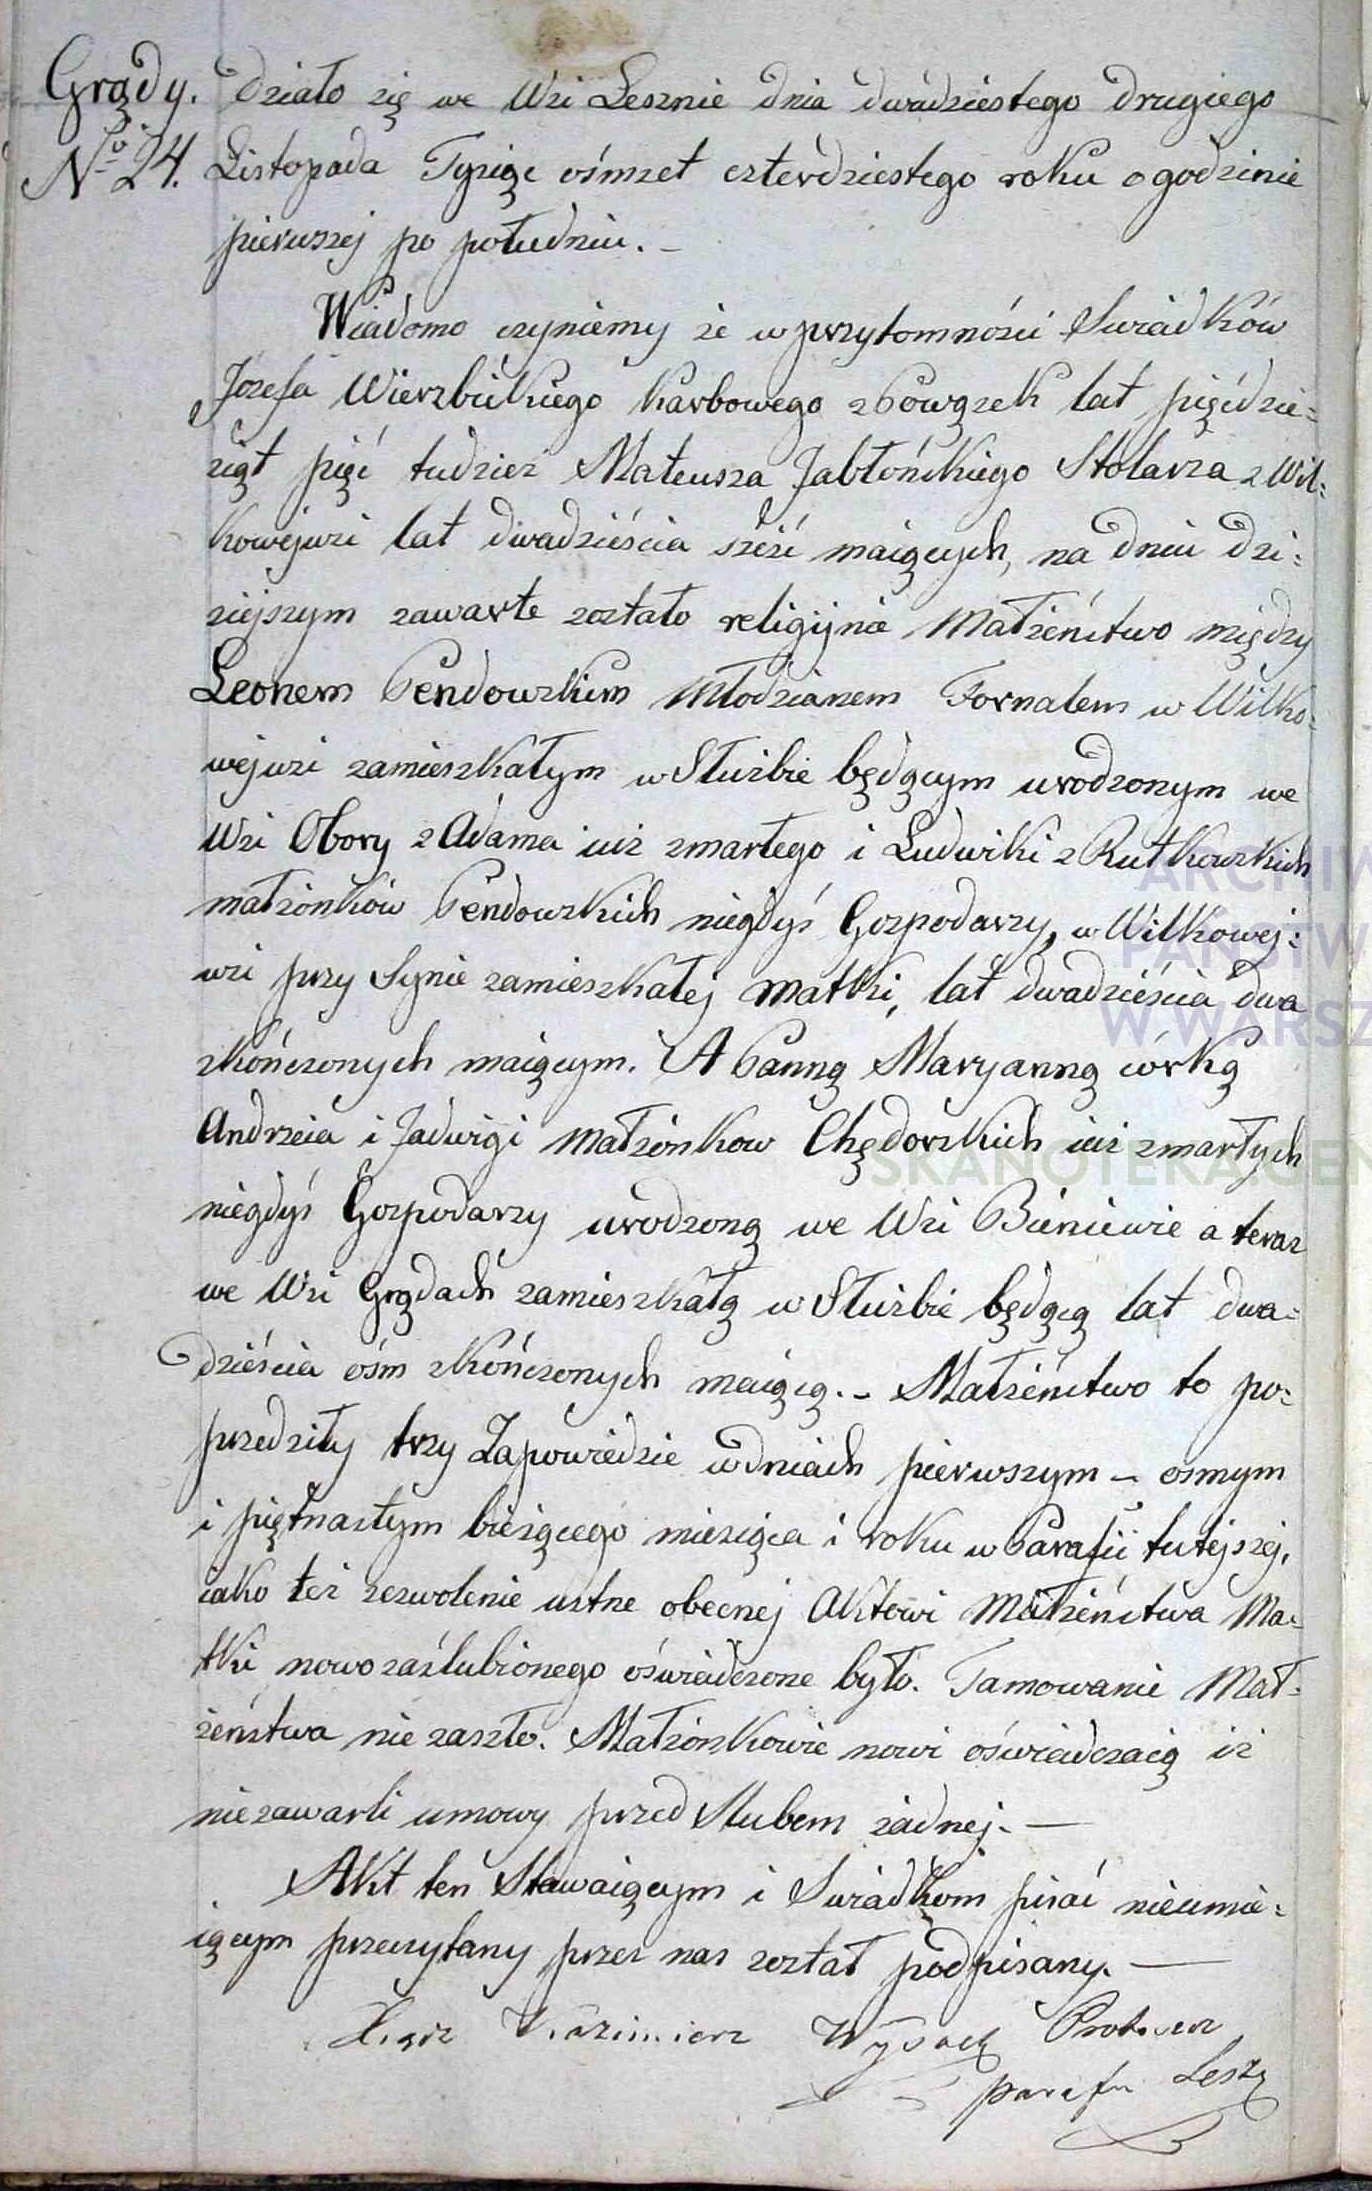 Grądy. Działo się we Wsi Lesznie dnia dwudziestego drugiego
No 24. Listopada Tysiąc ośmset czterdziestego roku o godzinie
pierwszej po południu. –
Wiadomo czyniemy że w przytomności Swiadków
Józefa Wierzbickiego Karbowego z Powązek lat pięćdzie:
siąt pięć tudzież Mateusza Jabłońskiego Stolarza z Wil:
kowejwsi lat dwadzieścia sześć maiących, na dniu dzi:
siejszym zawarte zostało religijnie Małżeństwo między
Leonem Pendowskim Młodzianem Fornalem w Wilko:
wejwsi zamieszkałym w Służbie będącym urodzonym we
Wsi Obory z Adama iuż zmarłego i Ludwiki z Rutkowskich
małżonków Pendowskich niegdyś Gospodarzy, w Wilkowej:
wsi przy Synie zamieszkałej Matki, lat dwadzieścia dwa
skończonych maiącym. A Panną Maryanną córką
Andrzeia i Jadwigi Małżonkow Chędorskich iuż zmarłych
niegdyś Gospodarzy urodzoną we Wsi Bieniewie a teraz
we Wsi Grądach zamieszkałą w Służbie będącą lat dwa:
dzieścia ośm skończonych maiącą. – Małżeństwo to po:
przedziły trzy Zapowiedzie w dniach pierwszym – osmym
i piętnastym bieżącego miesiąca i roku w Parafii tutejszej,
iako też zezwolenie ustne obecnej Aktowi Małżeństwa Ma:
tki nowozaślubionego oświadczone było. Tamowanie Mał:
żeństwa nie zaszło. Małżonkowie nowi oświadczaią iż
niezawarli umowy przed Slubem żadnej. —
Akt ten Stawaiącym i Swiadkom pisać nieumie:
iącym przeczytany przez nas został podpisany. —
Xiądz Kazimierz Wysocki Proboszcz
parafii Leszn
ARCHIW
PAŃSTW
W WARSZ
SKANOTEKA.GEN